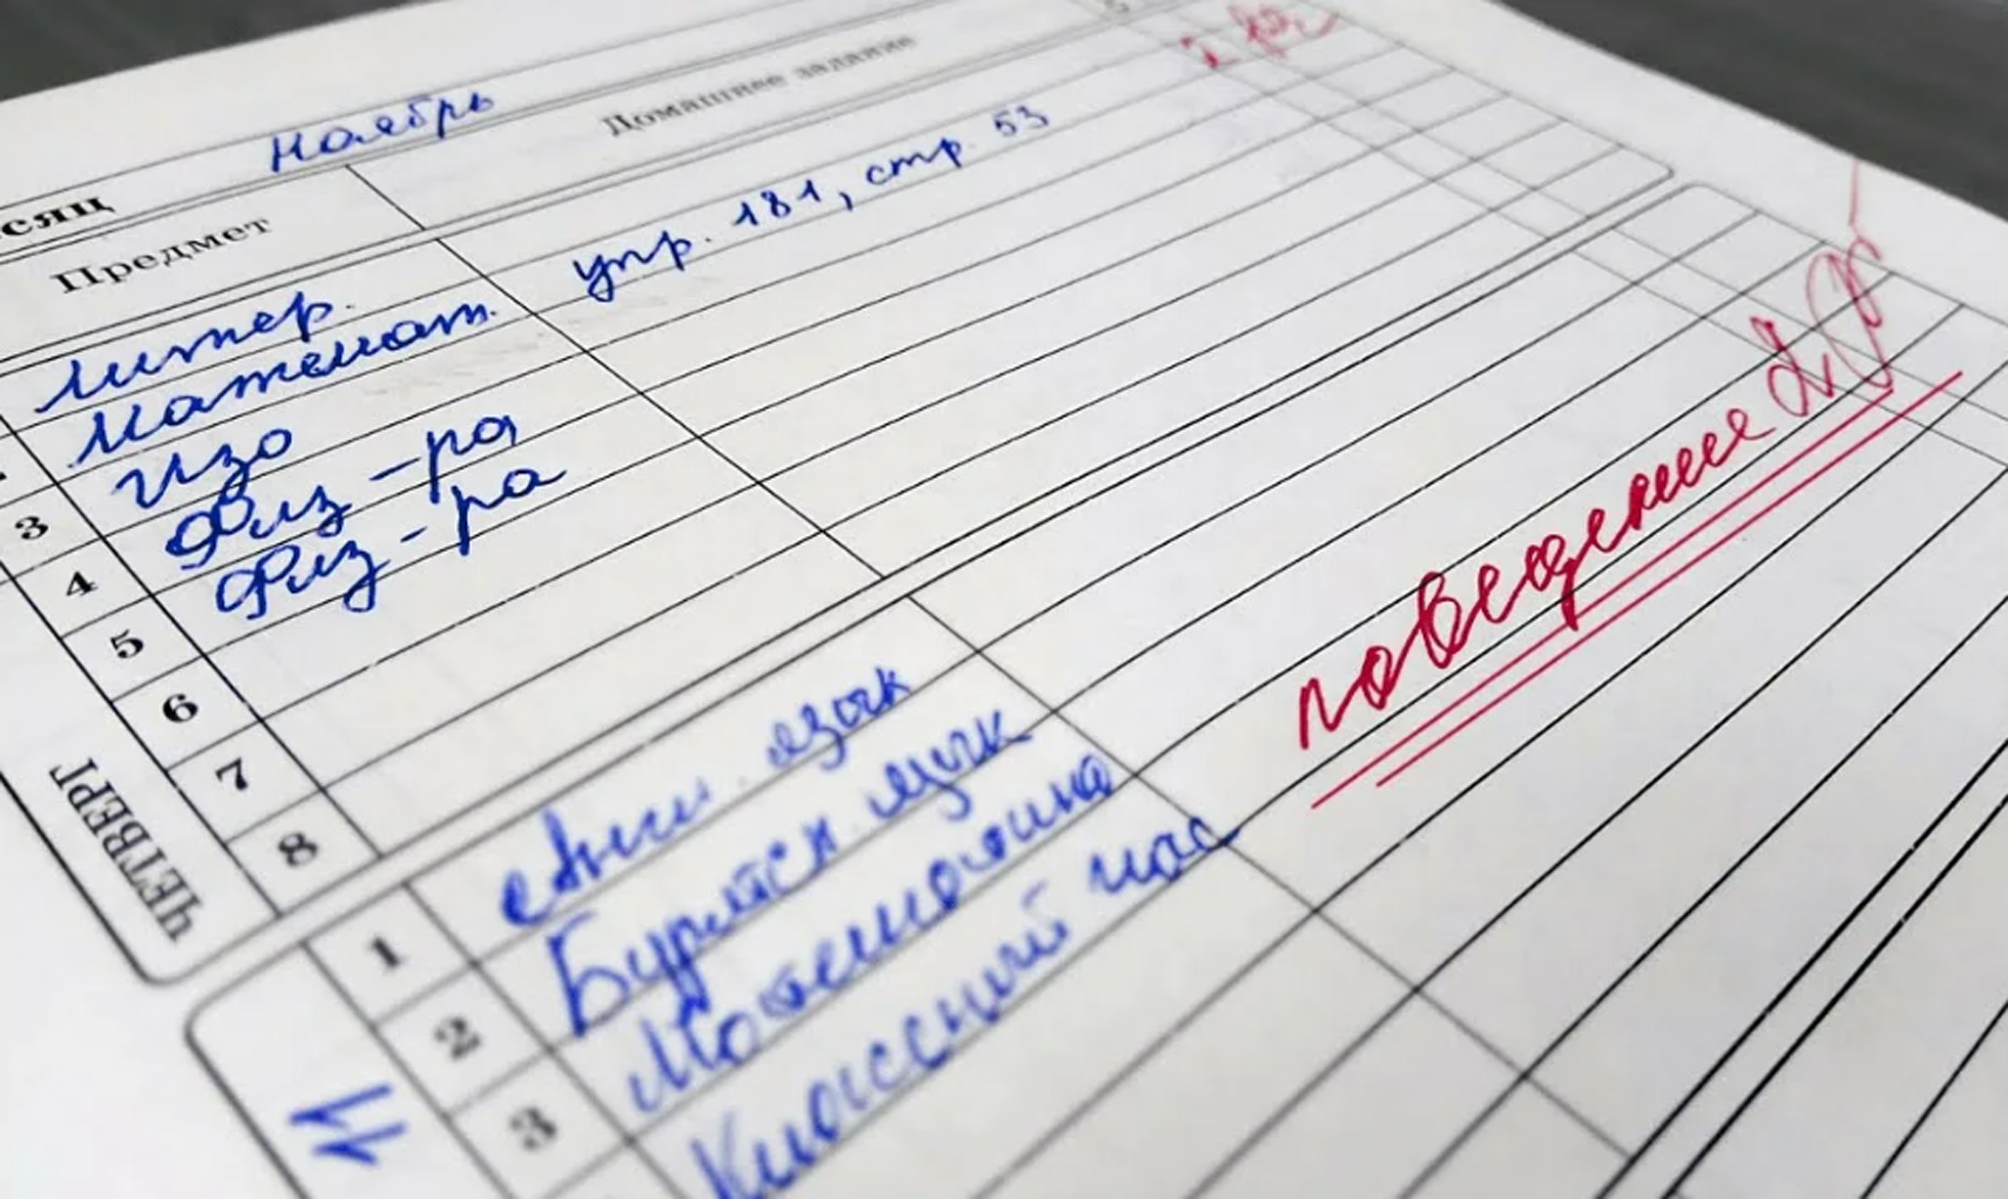 сяц ноябрь
Предмет Домашнее задание
литер.
математ. упр. 181, стр. 53
3 изо
4 Физ-ра
5 Физ-ра
6
7
8
ЧЕТВЕРГ
1 Англ. язык
2 Бурятск. язык
3 Математика
Классный час
поведение 2
11